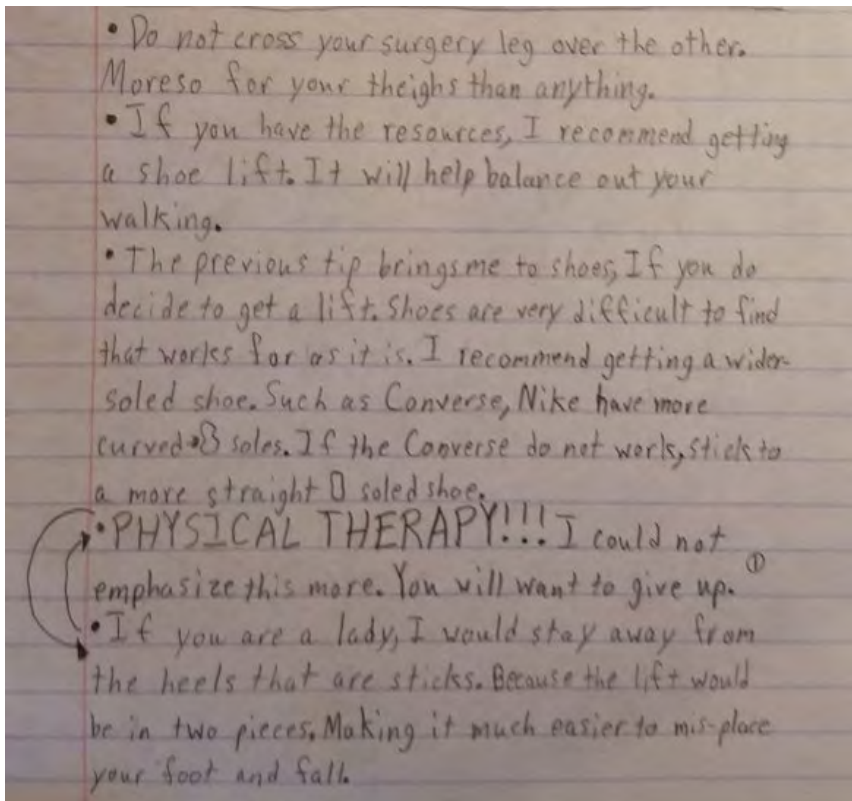 • Do not cross your surgery leg over the other.
Moreso for your theighs than anything.
• If you have the resources, I recommend getting
a shoe lift. It will help balance out your
walking.
• The previous tip brings me to shoes, If you do
decide to get a lift. Shoes are very difficult to find
that works for as it is. I recommend getting a wider-
soled shoe. Such as Converse, Nike have more
curved soles. If the Converse do not work, stick to
a more straight soled shoe.
• PHYSICAL THERAPY!!! I could not
emphasize this more. You will want to give up. ①
• If you are a lady, I would stay away from
the heels that are sticks. Because the lift would
be in two pieces. Making it much easier to mis-place
your foot and fall.